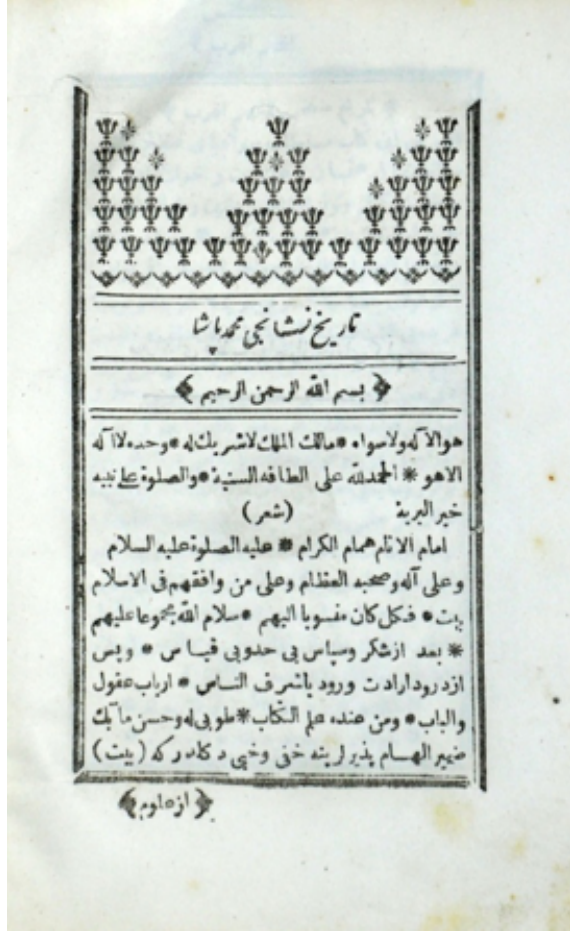 تاریخ نشانجی محمد پاشا
﴿ بسم الله الرحمن الرحیم ﴾
هو الاله ولا سواه * مالك الملك لا شریك له * وحده لا اله
الا هو * الحمد لله على الطافه السنیة * والصلوة على نبیه
خیر البریة (شعر)
امام الانام همام الكرام * علیه الصلوة علیه السلام
وعلى آله وصحبه العظام وعلى من وافقهم فی الاسلام
بیت * فكل كان منسوبا الیهم * سلام الله مجموعا علیهم
* بعد از شكر وسپاس بی حد وبی قیاس * وپس
از درود ارادت ورود باشرف الناس * ارباب عقول
والباب * ومن عنده علم الكتاب * طوبی له وحسن مآبك
ضمیر الهام پذیرلرینه خفی وخبی دكلدركه (بیت)
﴿ از علوم ﴾